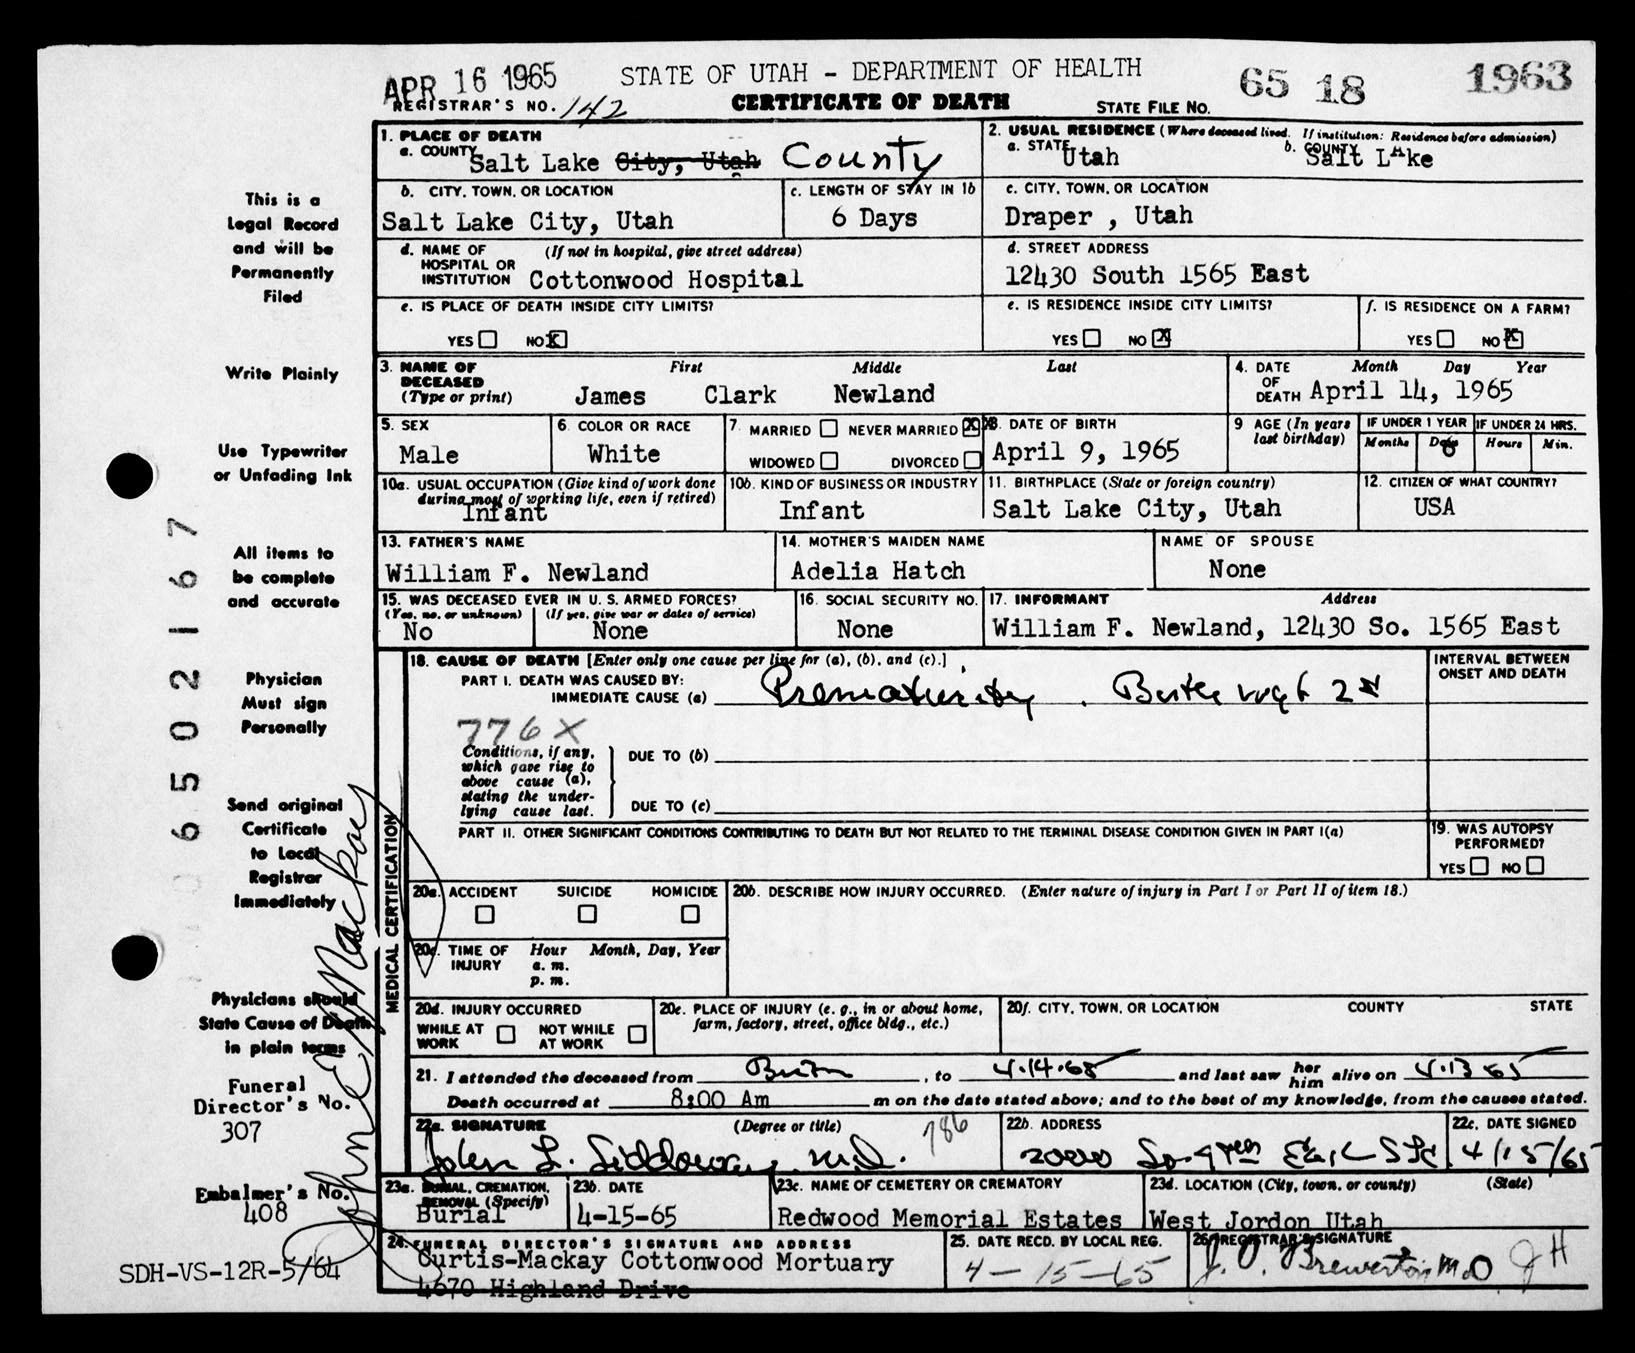 APR 16 1965
STATE OF UTAH - DEPARTMENT OF HEALTH
65 18 1963
REGISTRAR'S NO. 142
CERTIFICATE OF DEATH
STATE FILE NO.
1. PLACE OF DEATH
a. COUNTY Salt Lake City, Utah County
2. USUAL RESIDENCE (Where deceased lived. If institution: Residence before admission)
a. STATE Utah
b. COUNTY Salt Lake
b. CITY, TOWN, OR LOCATION
Salt Lake City, Utah
c. LENGTH OF STAY IN 1b
6 Days
c. CITY, TOWN, OR LOCATION
Draper , Utah
d. NAME OF HOSPITAL OR INSTITUTION (If not in hospital, give street address)
Cottonwood Hospital
d. STREET ADDRESS
12430 South 1565 East
e. IS PLACE OF DEATH INSIDE CITY LIMITS?
YES NO X
e. IS RESIDENCE INSIDE CITY LIMITS?
YES NO X
f. IS RESIDENCE ON A FARM?
YES NO X
3. NAME OF DECEASED (Type or print)
First Middle Last
James Clark Newland
4. DATE OF DEATH Month Day Year
April 14, 1965
5. SEX
Male
6. COLOR OR RACE
White
7. MARRIED NEVER MARRIED X
WIDOWED DIVORCED
8. DATE OF BIRTH
April 9, 1965
9 AGE (In years last birthday)
IF UNDER 1 YEAR IF UNDER 24 HRS.
Months Days Hours Min.
6
10a. USUAL OCCUPATION (Give kind of work done during most of working life, even if retired)
Infant
10b. KIND OF BUSINESS OR INDUSTRY
Infant
11. BIRTHPLACE (State or foreign country)
Salt Lake City, Utah
12. CITIZEN OF WHAT COUNTRY?
USA
13. FATHER'S NAME
William F. Newland
14. MOTHER'S MAIDEN NAME
Adelia Hatch
NAME OF SPOUSE
None
15. WAS DECEASED EVER IN U. S. ARMED FORCES?
(Yes, no, or unknown) (If yes, give war or dates of service)
No None
16. SOCIAL SECURITY NO.
None
17. INFORMANT Address
William F. Newland, 12430 So. 1565 East
MEDICAL CERTIFICATION
18. CAUSE OF DEATH [Enter only one cause per line for (a), (b), and (c).]
PART I. DEATH WAS CAUSED BY:
IMMEDIATE CAUSE (a) Prematurity . Birth wgt 2#
INTERVAL BETWEEN ONSET AND DEATH
776X
Conditions, if any, which gave rise to above cause (a), stating the underlying cause last.
DUE TO (b)
DUE TO (c)
PART II. OTHER SIGNIFICANT CONDITIONS CONTRIBUTING TO DEATH BUT NOT RELATED TO THE TERMINAL DISEASE CONDITION GIVEN IN PART I(a)
19. WAS AUTOPSY PERFORMED?
YES NO
20a. ACCIDENT SUICIDE HOMICIDE
20b. DESCRIBE HOW INJURY OCCURRED. (Enter nature of injury in Part I or Part II of item 18.)
20c. TIME OF INJURY Hour Month, Day, Year
a. m.
p. m.
20d. INJURY OCCURRED
WHILE AT WORK NOT WHILE AT WORK
20e. PLACE OF INJURY (e. g., in or about home, farm, factory, street, office bldg., etc.)
20f. CITY, TOWN, OR LOCATION COUNTY STATE
21. I attended the deceased from Birth , to 4.14.65 and last saw her him alive on 4.13 65
Death occurred at 8:00 Am m on the date stated above; and to the best of my knowledge, from the causes stated.
22a. SIGNATURE (Degree or title)
John L. Siddoway M.D.
786
22b. ADDRESS
2000 So. 9th East SLC
22c. DATE SIGNED
4/15/65
23a. BURIAL, CREMATION, REMOVAL (Specify)
Burial
23b. DATE
4-15-65
23c. NAME OF CEMETERY OR CREMATORY
Redwood Memorial Estates
23d. LOCATION (City, town, or county) (State)
West Jordon Utah
24. FUNERAL DIRECTOR'S SIGNATURE AND ADDRESS
Curtis-Mackay Cottonwood Mortuary
4670 Highland Drive
25. DATE RECD. BY LOCAL REG.
4-15-65
26. REGISTRAR'S SIGNATURE
J. O. Brewerton M.D JH
This is a
Legal Record
and will be
Permanently
Filed
Write Plainly
Use Typewriter
or Unfading Ink
All items to
be complete
and accurate
Physician
Must sign
Personally
Send original
Certificate
to Local
Registrar
Immediately
Physicians should
State Cause of Death
in plain terms
Funeral
Director's No.
307
Embalmer's No.
408
SDH-VS-12R-5/64
6502167
John E Mackay